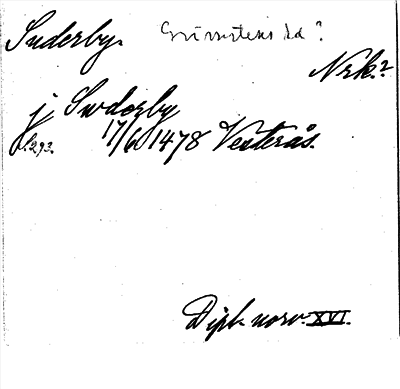 Suderby. Grimstens hd?
Nrk?
j Swdorby
s. 293. 17/6 1478 Vesterås.
Dipl. norv. XVI.